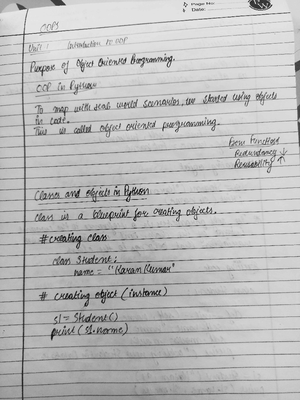 Page No.
Date:
OOPS
Unit: Introduction to OOP
Purpose of Object Oriented Programming.
OOP in Python
To map with real world scenarios, we started using objects
in code.
This is called object oriented programming.
Functions
Redundancy ↓
Reusability ↑
Classes and objects in Python
Class is a blueprint for creating objects.
# creating class
class Student:
name = "Karan Kumar"
# creating object (instance)
s1 = Student()
print (s1.name)